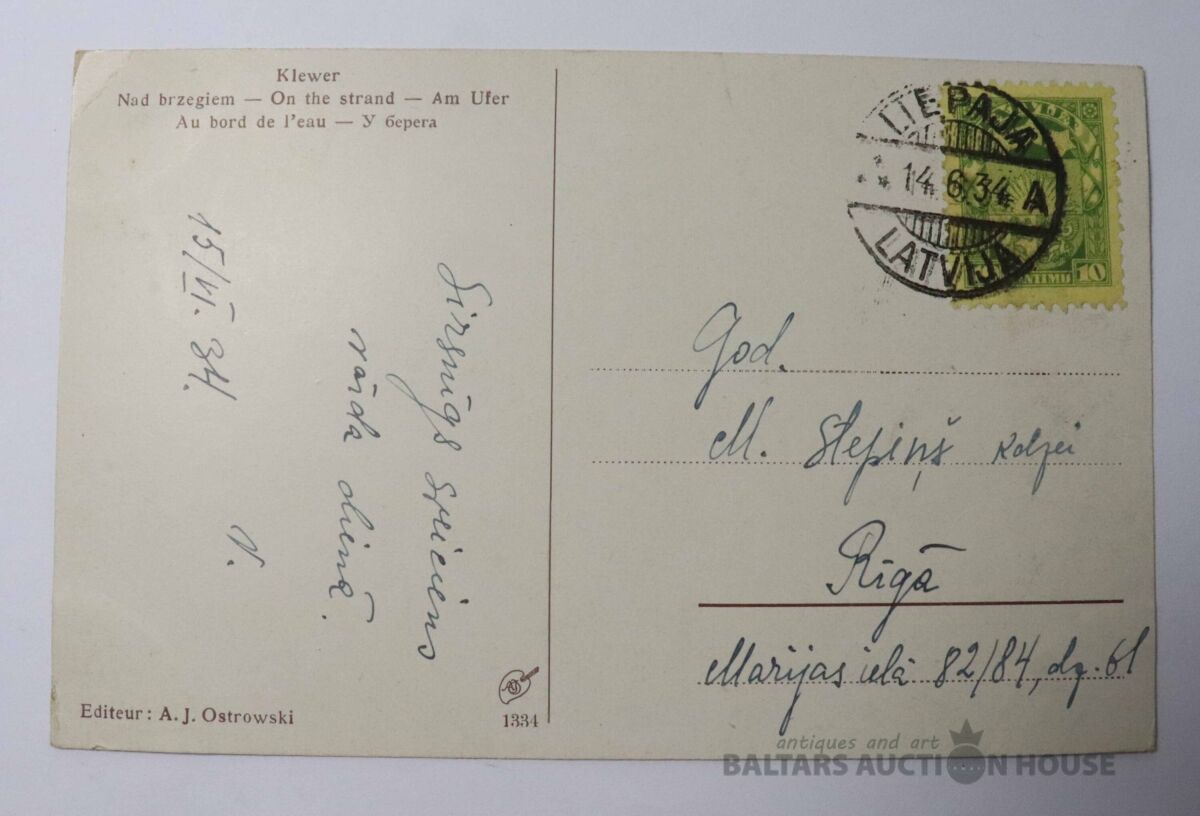 Klewer
Nad brzegiem — On the strand — Am Ufer
Au bord de l'eau — У берега
LIEPAJA
14.6.34 A
LATVIJA
LATVIJA
10 SANTIMU 10
15/VI. 34.
Sirsnīgs sveiciens
vārda dienā.
V.
God.
M. Slepiņš kdzei
Rīgā
Marijas ielā 82/84, dz. 61
Editeur: A. J. Ostrowski
1334
antiques and art
BALTARS AUCTION HOUSE